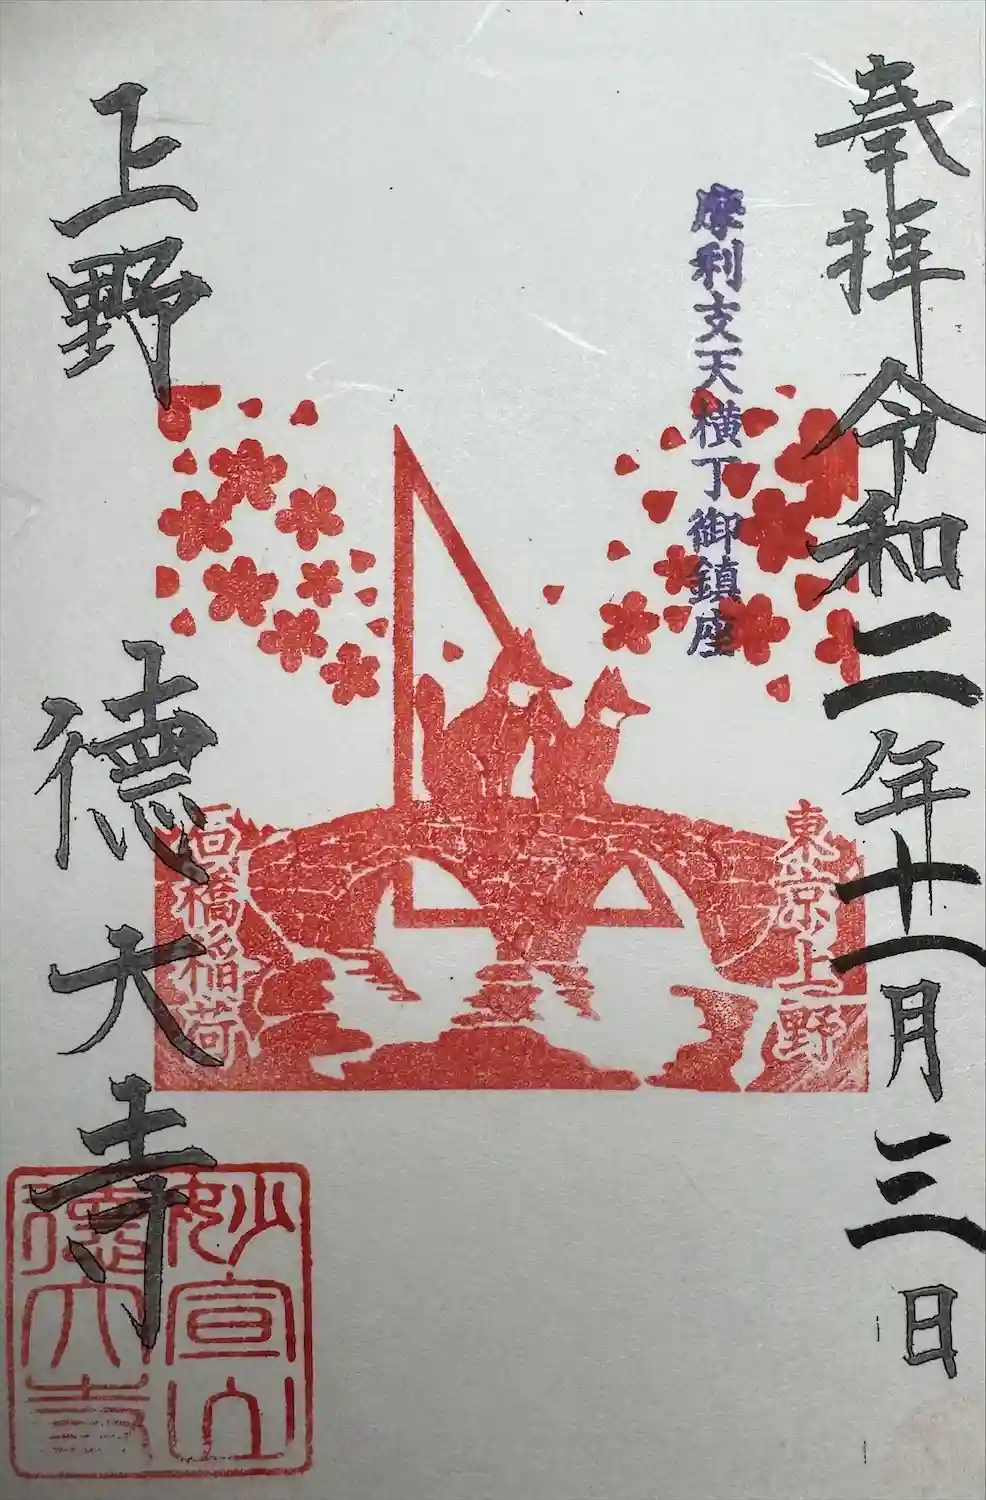 奉拝 令和二年十一月三日
摩利支天横丁御鎮座
東京上野
高橋稲荷
上野 德大寺
妙宣山
德大寺